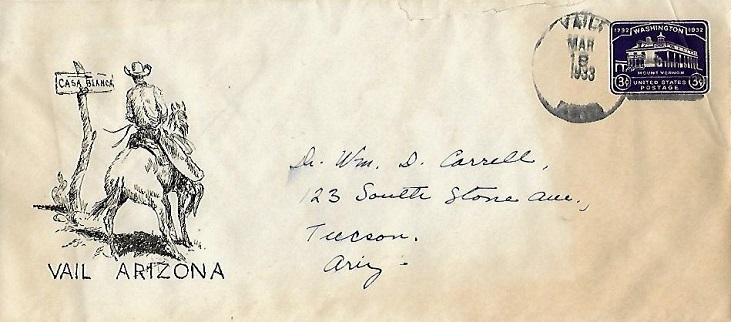 CASA BLANCA
VAIL ARIZONA
VAIL
MAR
18
1933
1732 WASHINGTON 1932
MOUNT VERNON
3¢ UNITED STATES 3¢
POSTAGE
Dr. Wm. D. Carrell,
123 South Stone Ave.,
Tucson.
Ariz-